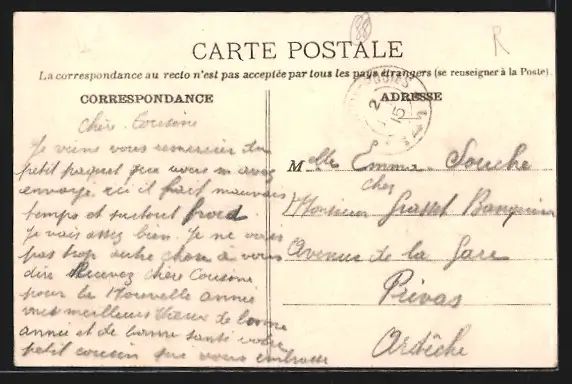 R
CARTE POSTALE
La correspondance au recto n'est pas acceptée par tous les pays étrangers (se renseigner à la Poste)
CORRESPONDANCE
Chère Cousine
Je viens vous remercier du
petit paquet que vous m avez
envoyé ici il fait mauvais
temps et surtout froid
Je vais assez bien. Je ne vois
pas trop autre chose à vous
dire Recevez chère Cousine
pour la Nouvelle année
mes meilleurs Vœux de bonne
année et de bonne santé votre
petit cousin qui vous embrasse
ADRESSE
2
15
Melle Emma Souche
chez
Monsieur Grasset Banquier
Avenue de la Gare
Privas
Ardèche